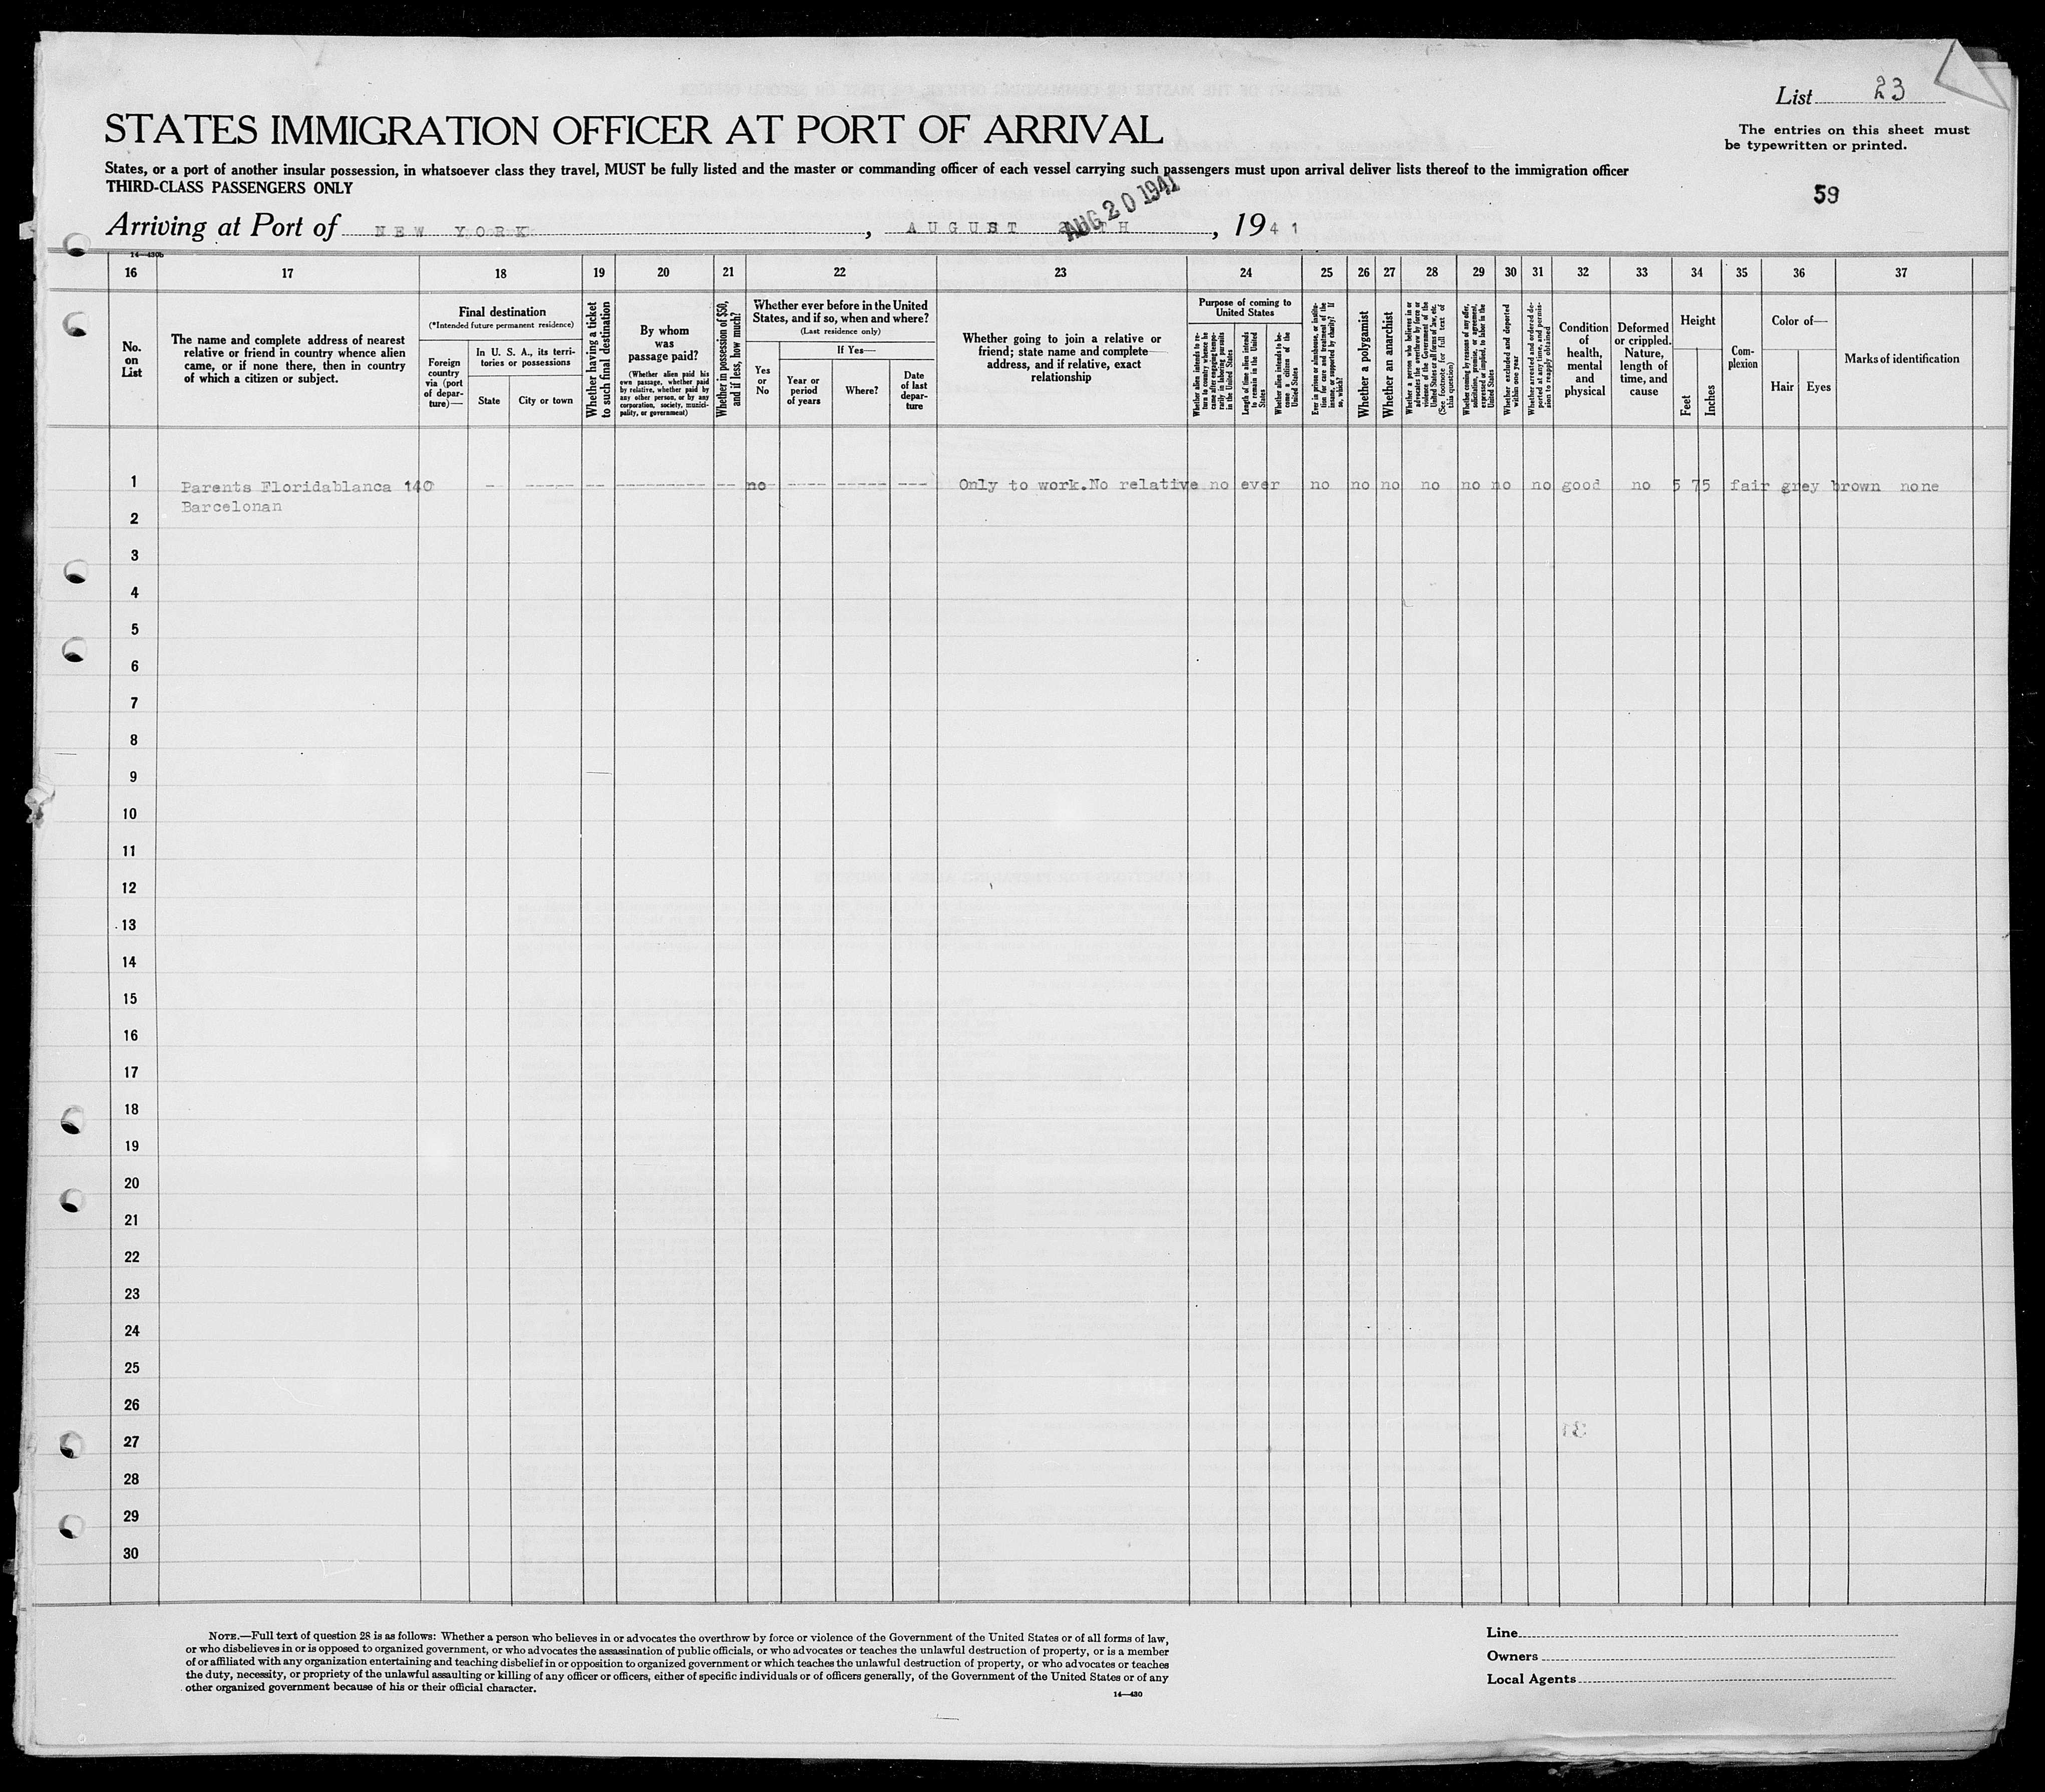 List 23
STATES IMMIGRATION OFFICER AT PORT OF ARRIVAL
The entries on this sheet must
be typewritten or printed.
States, or a port of another insular possession, in whatsoever class they travel, MUST be fully listed and the master or commanding officer of each vessel carrying such passengers must upon arrival deliver lists thereof to the immigration officer
THIRD-CLASS PASSENGERS ONLY
59
Arriving at Port of NEW YORK, AUGUST TH, 1941
AUG 20 1941
14—430b
16 17 18 19 20 21 22 23 24 25 26 27 28 29 30 31 32 33 34 35 36 37
No.
on
List
The name and complete address of nearest
relative or friend in country whence alien
came, or if none there, then in country
of which a citizen or subject.
Final destination
(*Intended future permanent residence)
Foreign
country
via (port
of depar-
ture)—
In U. S. A., its terri-
tories or possessions
State
City or town
Whether having a ticket
to such final destination
By whom
was
passage paid?
(Whether alien paid his
own passage, whether paid
by relative, whether paid by
any other person, or by any
corporation, society, munici-
pality, or government)
Whether in possession of $50,
and if less, how much?
Whether ever before in the United
States, and if so, when and where?
(Last residence only)
Yes
or
No
If Yes—
Year or
period
of years
Where?
Date
of last
depar-
ture
Whether going to join a relative or
friend; state name and complete
address, and if relative, exact
relationship
Purpose of coming to
United States
Whether alien intends to re-
turn to country whence he
came after engaging tempo-
rarily in laboring pursuits
in the United States
Length of time alien intends
to remain in the United
States
Whether alien intends to be-
come a citizen of the
United States
Ever in prison or almshouse, or institu-
tion for care and treatment of the
insane, or supported by charity? If
so, which?
Whether a polygamist
Whether an anarchist
Whether a person who believes in or
advocates the overthrow by force or
violence of the Government of the
United States or all forms of law, etc.
(See footnote for full text of
this question)
Whether coming by reasons of any offer,
solicitation, promise, or agreement,
expressed or implied, to labor in the
United States
Whether excluded and deported
within one year
Whether arrested and ordered de-
ported at any time, and permis-
sion to reapply obtained
Condition
of
health,
mental
and
physical
Deformed
or crippled.
Nature,
length of
time, and
cause
Height
Feet
Inches
Com-
plexion
Color of—
Hair
Eyes
Marks of identification
1 Parents Floridablanca 140 - ----- -- ---------- --- no ---- ----- --- Only to work.No relative no ever no no no no no no no good no 5 75 fair grey brown none
Barcelonan
2
3
4
5
6
7
8
9
10
11
12
13
14
15
16
17
18
19
20
21
22
23
24
25
26
27
28
29
30
NOTE.—Full text of question 28 is as follows: Whether a person who believes in or advocates the overthrow by force or violence of the Government of the United States or of all forms of law,
or who disbelieves in or is opposed to organized government, or who advocates the assassination of public officials, or who advocates or teaches the unlawful destruction of property, or is a member
of or affiliated with any organization entertaining and teaching disbelief in or opposition to organized government or which teaches the unlawful destruction of property, or who advocates or teaches
the duty, necessity, or propriety of the unlawful assaulting or killing of any officer or officers, either of specific individuals or of officers generally, of the Government of the United States or of any
other organized government because of his or their official character.
14—430
Line
Owners
Local Agents